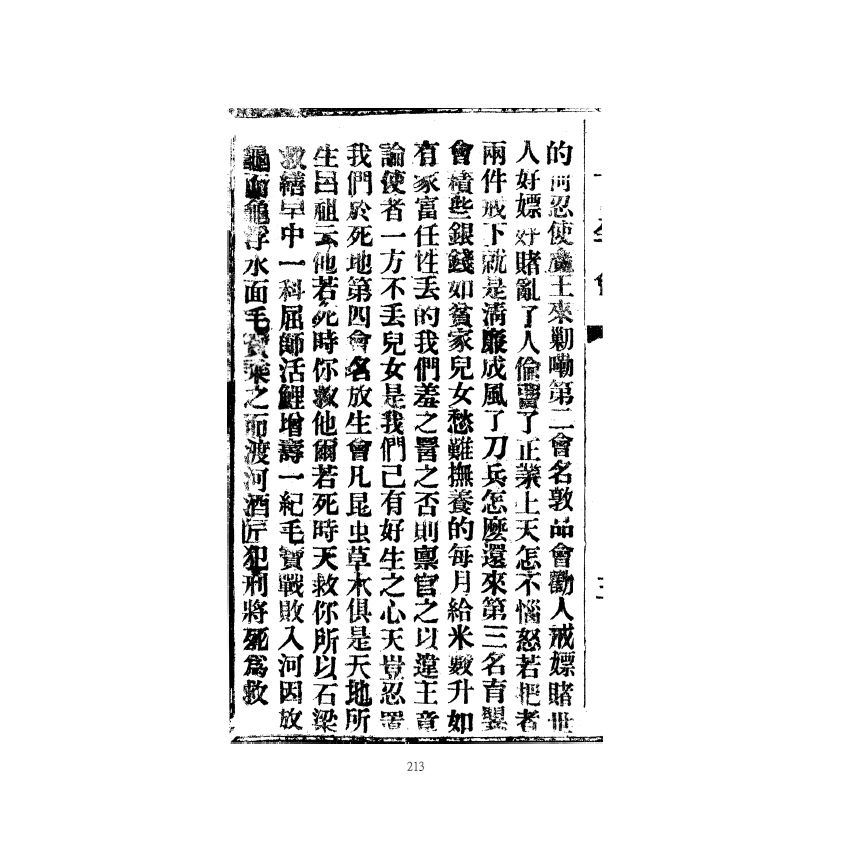 的尚忍使魔王來勦嘞第二會名敦品會勸人戒嫖賭世
人好嫖好賭亂了人倫壞了正業上天怎不惱怒若把者
兩件戒下就是清廉成風了刀兵怎麼還來第三名育嬰
會積些銀錢如貧家兒女愁難撫養的每月給米數升如
有家富任性丢的我們羞之詈之否則禀官之以違王章
論使者一方不丢兒女是我們已有好生之心天豈忍置
我們於死地第四會名放生會凡昆虫草木俱是天地所
生呂祖云他若死時你救他爾若死時天救你所以石梁
救 早中一科屈師活鯉增壽一紀毛寶戰敗入河因放
龜而龜浮水面毛寶乘之而渡河酒匠犯刑將死爲救
213